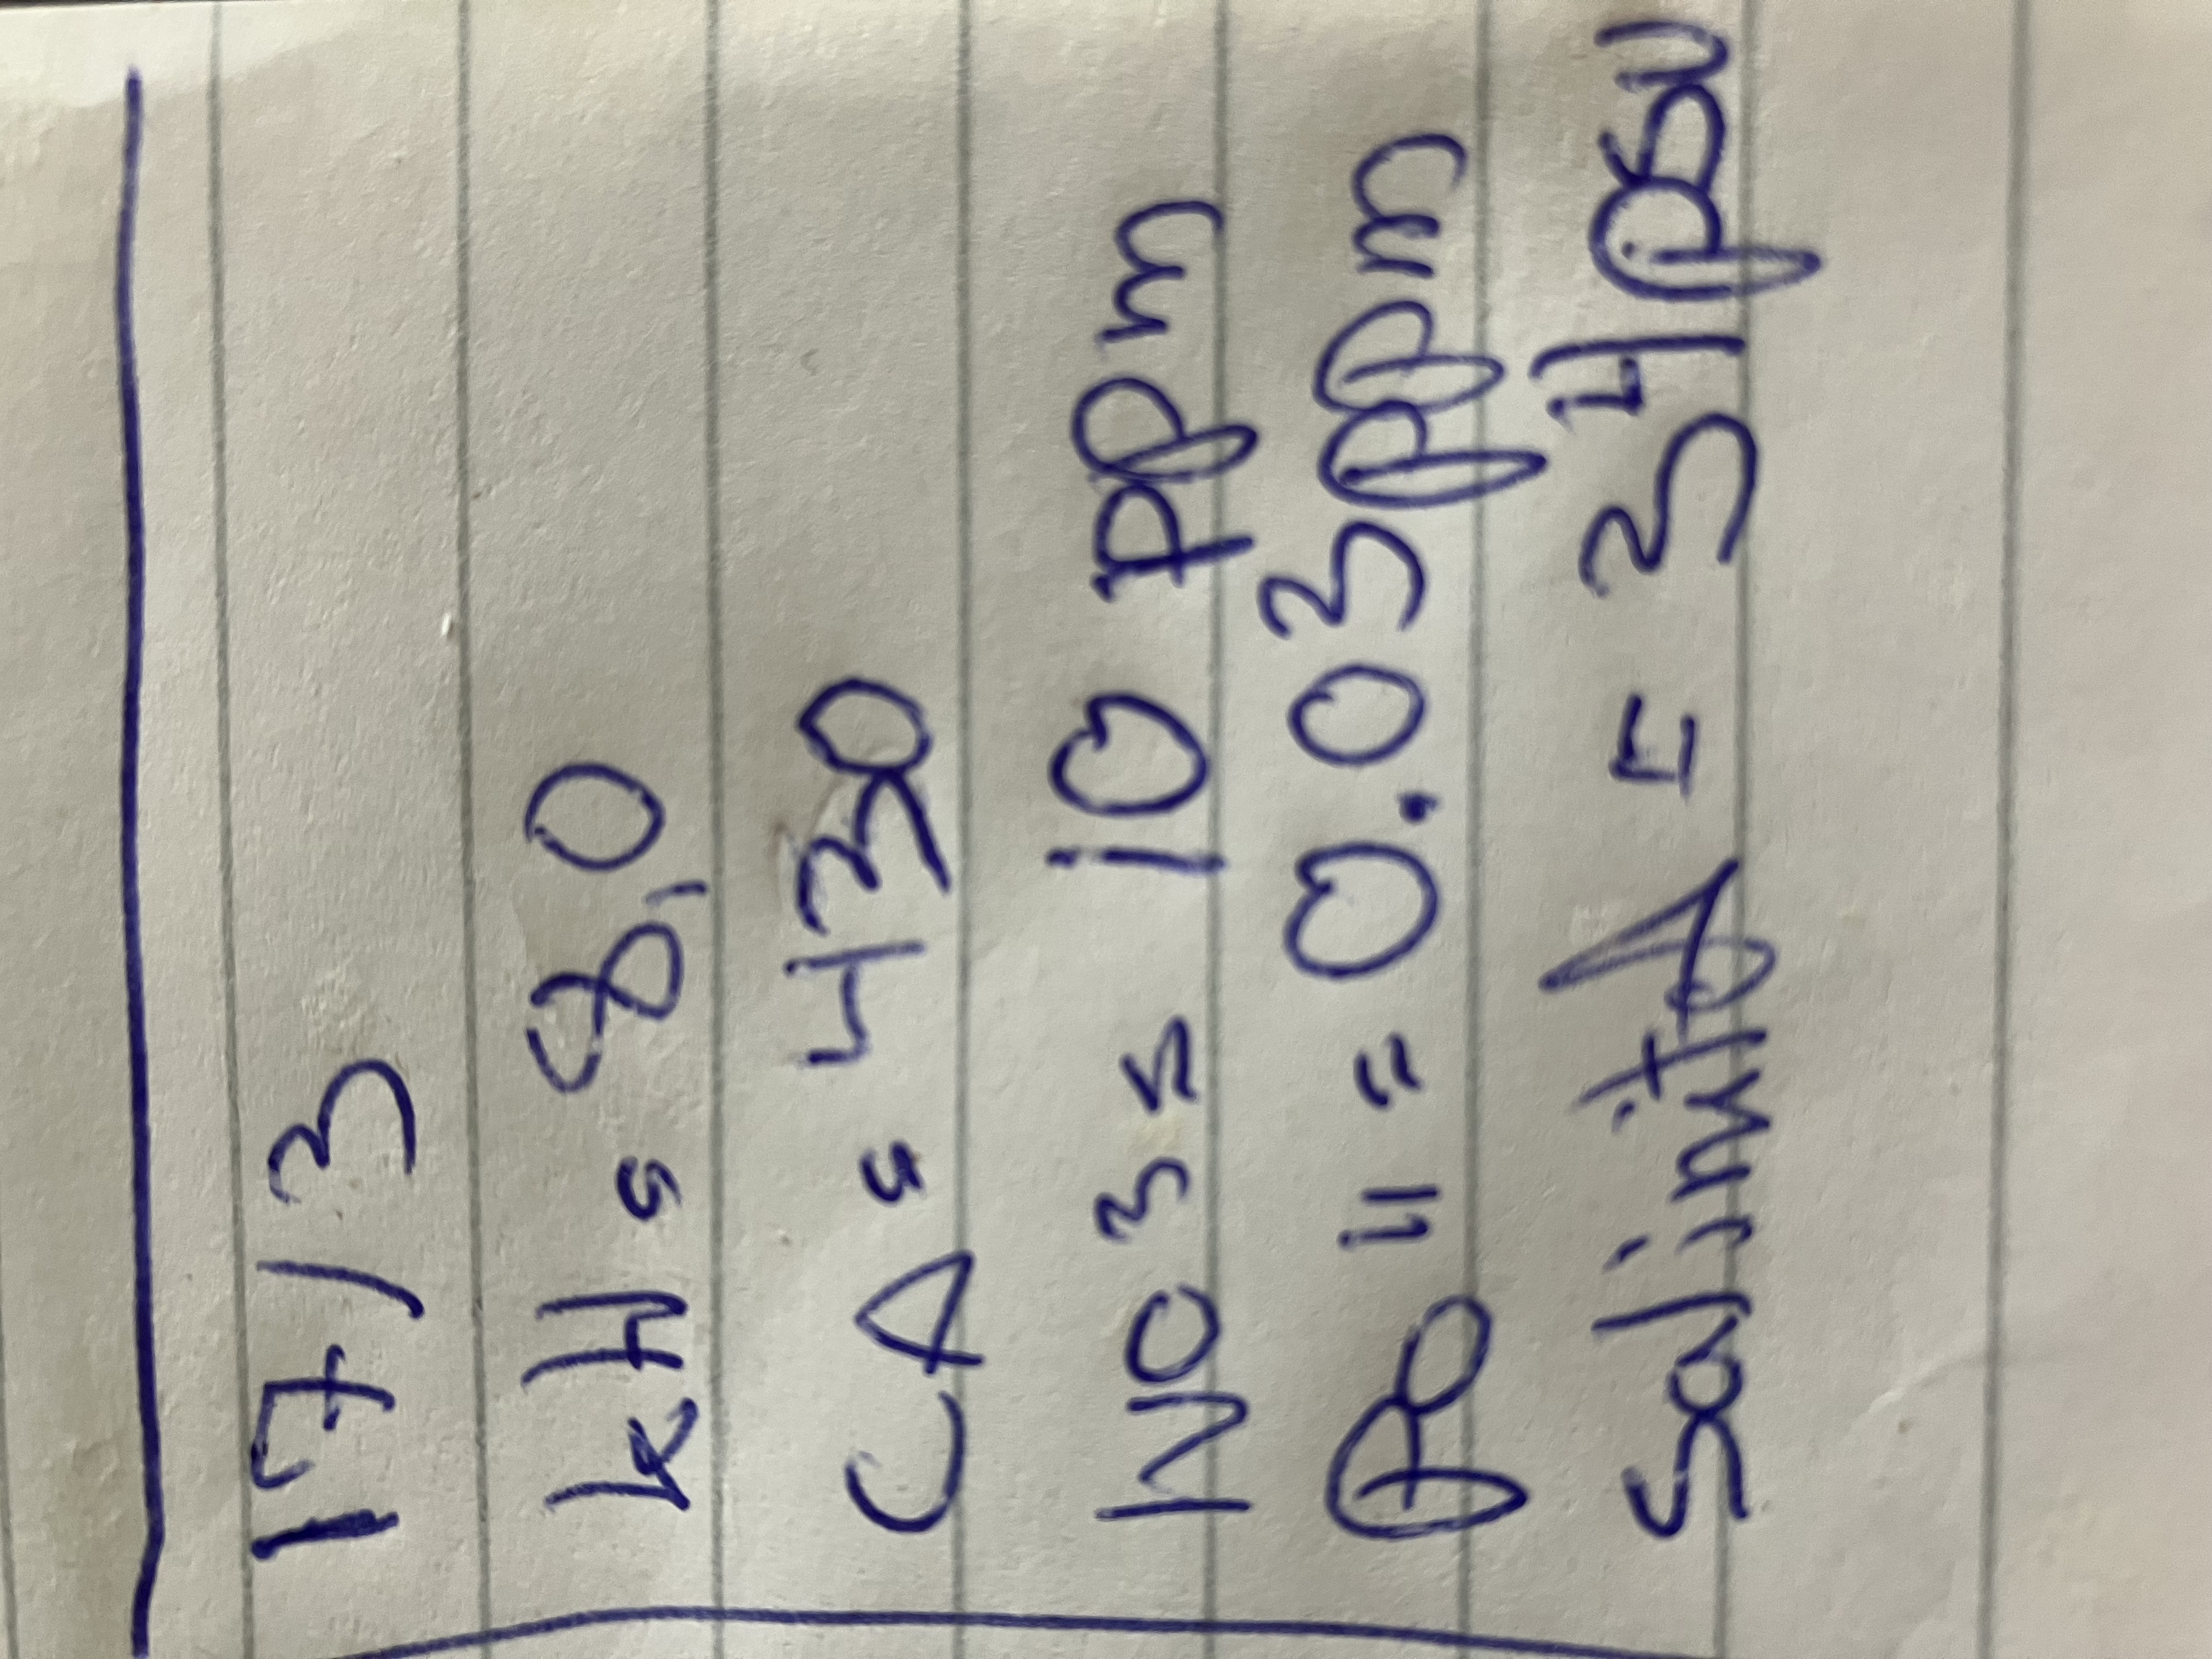 17/3
KH = 8,0
CA = 430
NO3 = 10 ppm
PO = = 0.03ppm
Salinity = 34psu